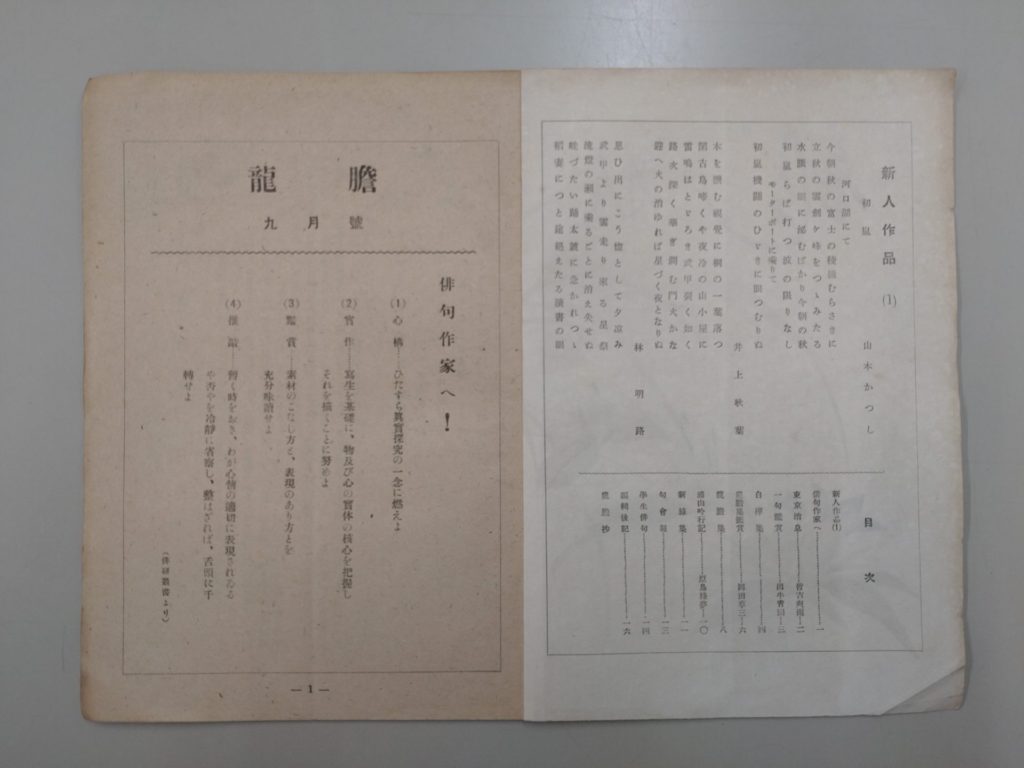 新人作品 (1)
初嵐 山本かつし
河口湖にて
今朝秋の富士の稜線むらさきに
立秋の雲剣ヶ峰をつゝみたる
初嵐らば打つ波の限りなし
モーターボートに乗りて
初嵐機関のひゞきに眼つむりぬ
井上秋葉
本を積む視覚に桐の一葉落つ
閑古鳥啼くや夜冷の山小屋に
路次深く華ぎ潤む門火かな
迎へ火の消ゆれば星づく夜となりぬ
林明路
思ひ出にこう惚として夕涼み
武甲より雲走り来る星祭
流燈の瀬に乗るごとに消え失せぬ
稲妻につと途絶えたる読書の眼
目次
新人作品(1)……一
俳句作家へ……一
東京消息……二
一句鑑賞……三
白樺集……四
龍膽集鑑賞……岡田 六
龍膽集……八
吟行記……一〇
新緑集……一一
句會報……一三
學生俳句……一四
編輯後記……一六
龍膽抄
龍膽
九月號
俳句作家へ!
(1) 心構…ひたすら眞實探究の一念に燃えよ
(2) 實作…寫生を基礎に、物及び心の實体の核心を把握し
それを描くことに努めよ
(3) 鑑賞…素材のこなし方と、表現のあり方とを
充分味讀せよ
(4) 推敲…暫く時をおき、わが心物の適切に表現されゐる
や否やを冷靜に省察し、整はざれば、舌頭に千
轉せよ
— 1 —